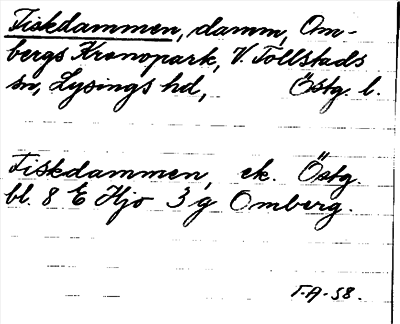 Fiskdammen, damm, Om-
bergs Kronopark, V. Tollstads
sn, Lysings hd, Östg. l.
Fiskdammen, ek. Östg.
bl. 8 E Hjo 3 g Omberg.
T.A-58.